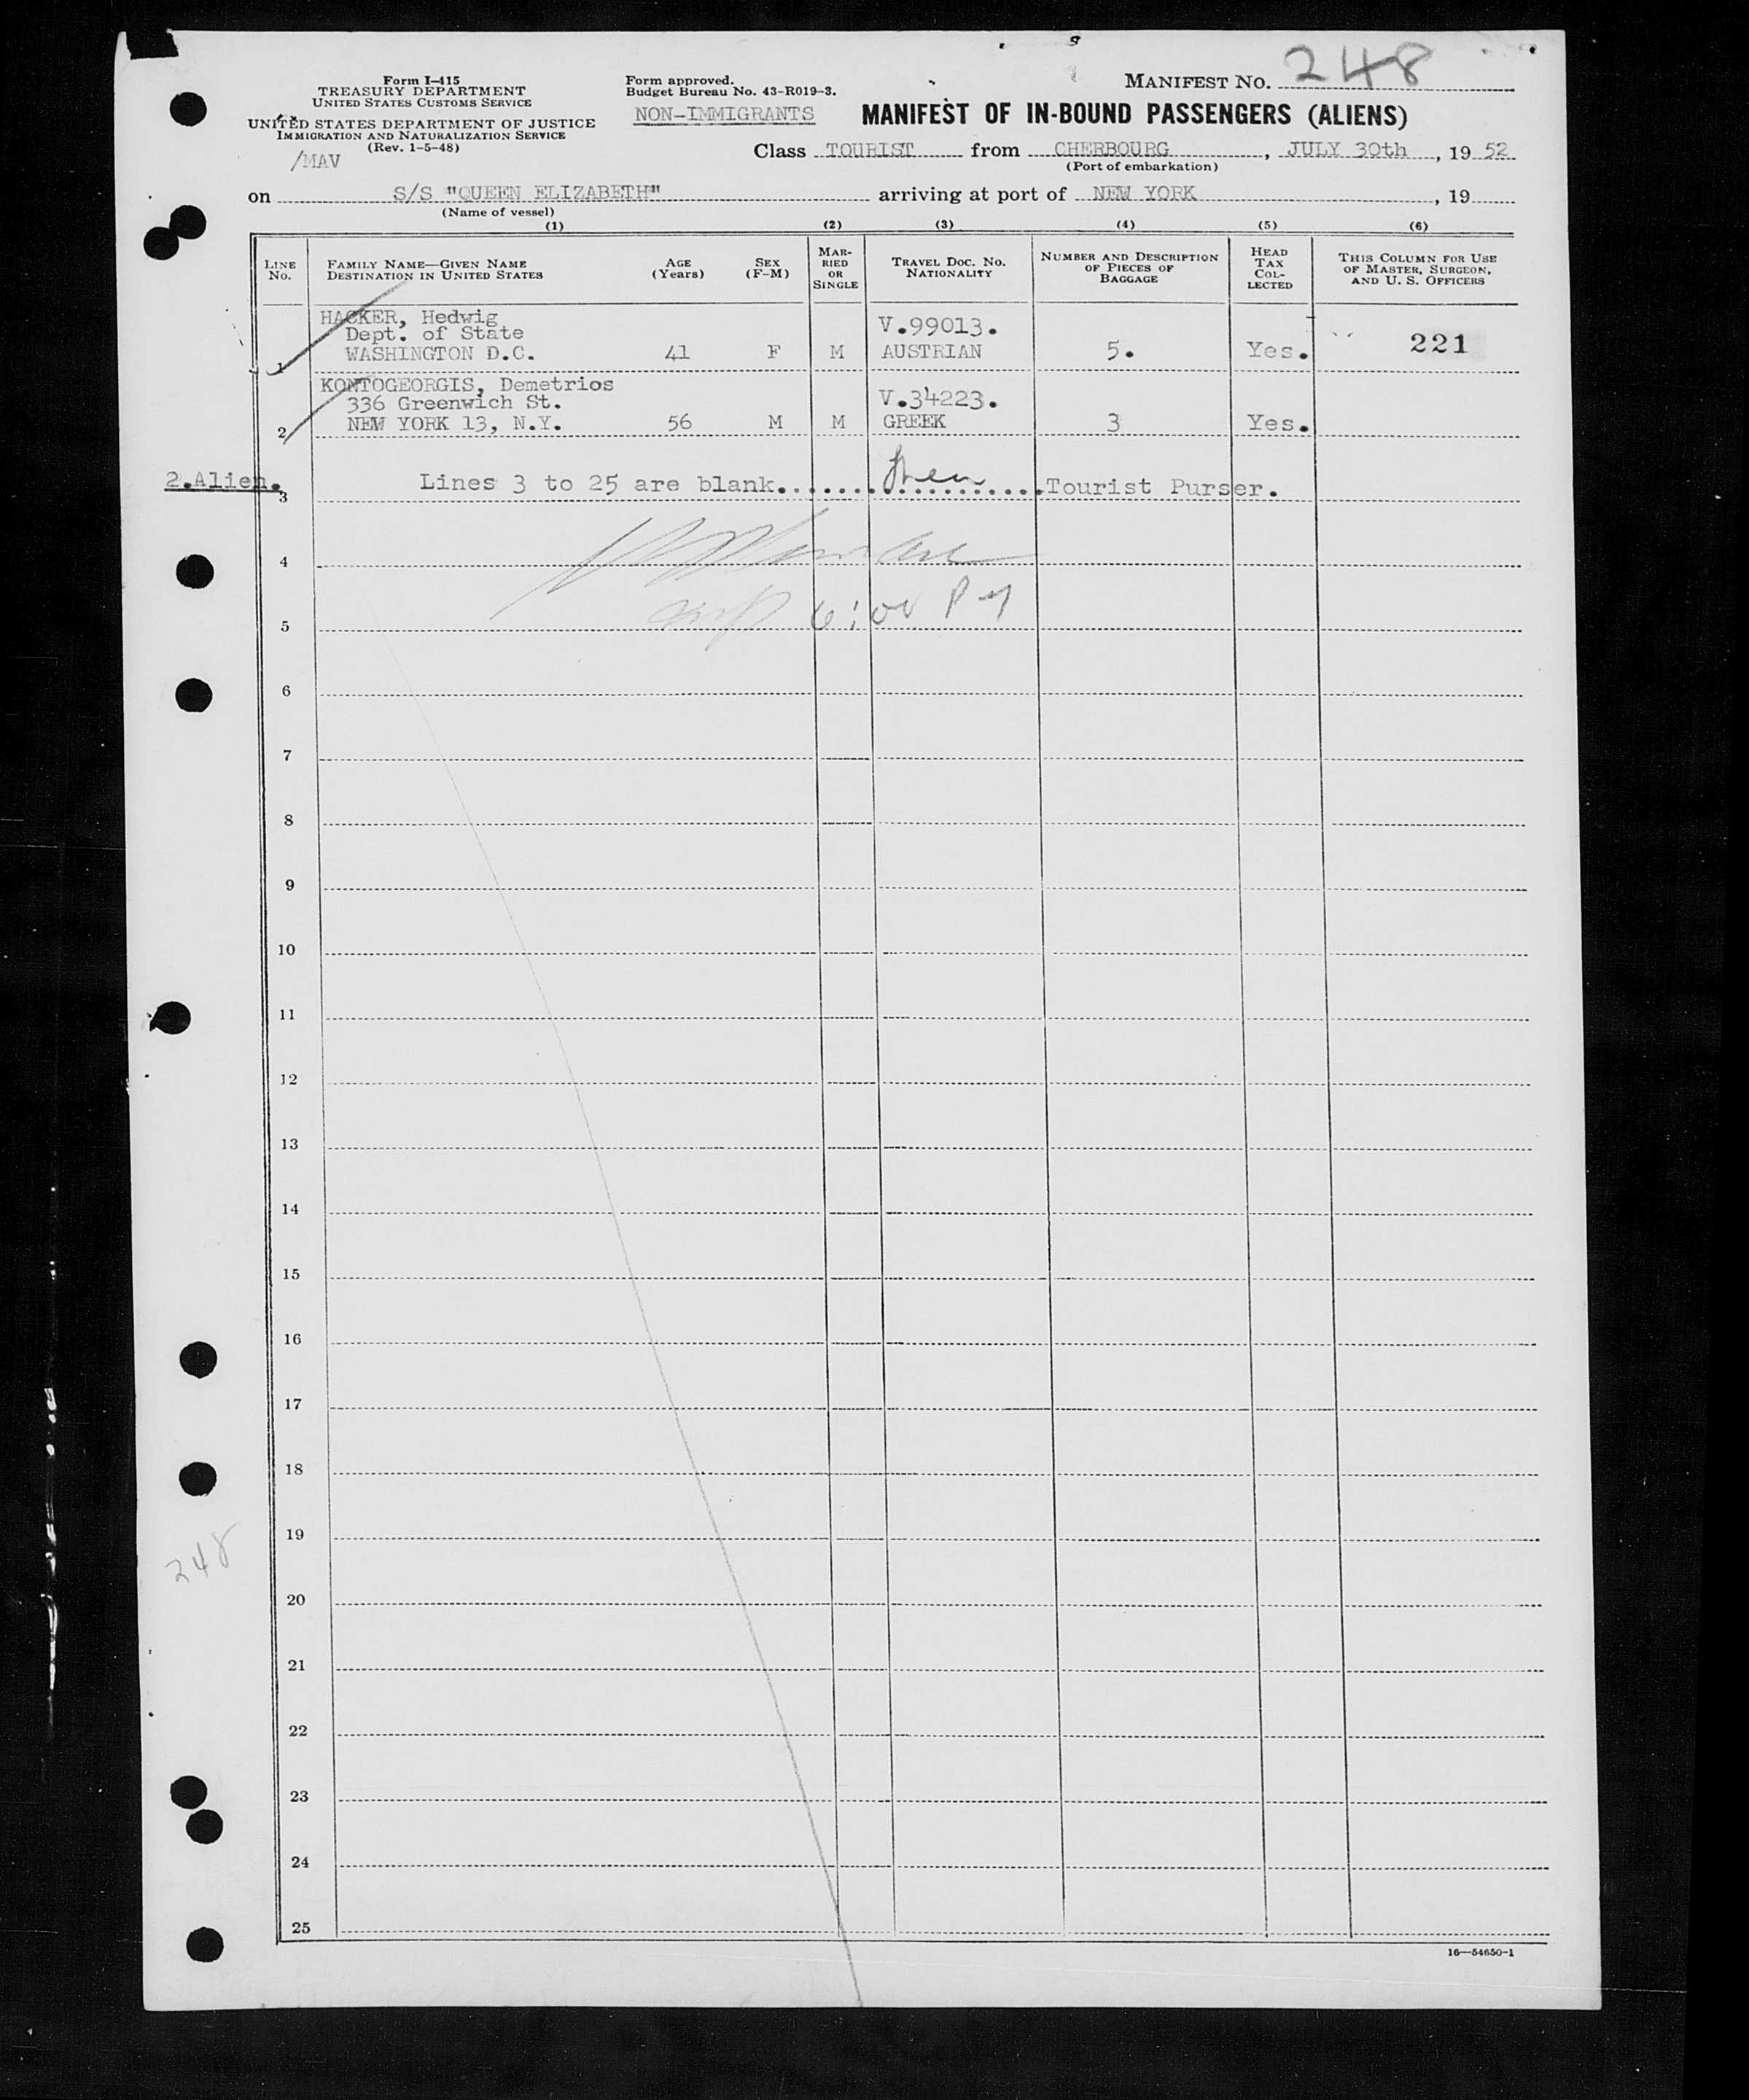 Form I-415
TREASURY DEPARTMENT
UNITED STATES CUSTOMS SERVICE
UNITED STATES DEPARTMENT OF JUSTICE
IMMIGRATION AND NATURALIZATION SERVICE
(Rev. 1-5-48)
/MAV
Form approved.
Budget Bureau No. 43-R019-3.
NON-IMMIGRANTS
MANIFEST NO. 248
MANIFEST OF IN-BOUND PASSENGERS (ALIENS)
Class TOURIST from CHERBOURG, JULY 30th, 19 52
(Port of embarkation)
on S/S "QUEEN ELIZABETH" arriving at port of NEW YORK, 19
(Name of vessel)
(1) (2) (3) (4) (5) (6)
LINE No. FAMILY NAME—GIVEN NAME DESTINATION IN UNITED STATES AGE (Years) SEX (F-M) MARRIED OR SINGLE TRAVEL DOC. NO. NATIONALITY NUMBER AND DESCRIPTION OF PIECES OF BAGGAGE HEAD TAX COLLECTED THIS COLUMN FOR USE OF MASTER, SURGEON, AND U. S. OFFICERS
HACKER, Hedwig
Dept. of State V.99013.
1 WASHINGTON D.C. 41 F M AUSTRIAN 5. Yes. 221
KONTOGEORGIS, Demetrios
336 Greenwich St. V.34223.
2 NEW YORK 13, N.Y. 56 M M GREEK 3 Yes.
2.Alien.
3 Lines 3 to 25 are blank. Tourist Purser.
4
5 6:00 PM
6
7
8
9
10
11
12
13
14
15
16
17
18
19
248
20
21
22
23
24
25
16—54650-1